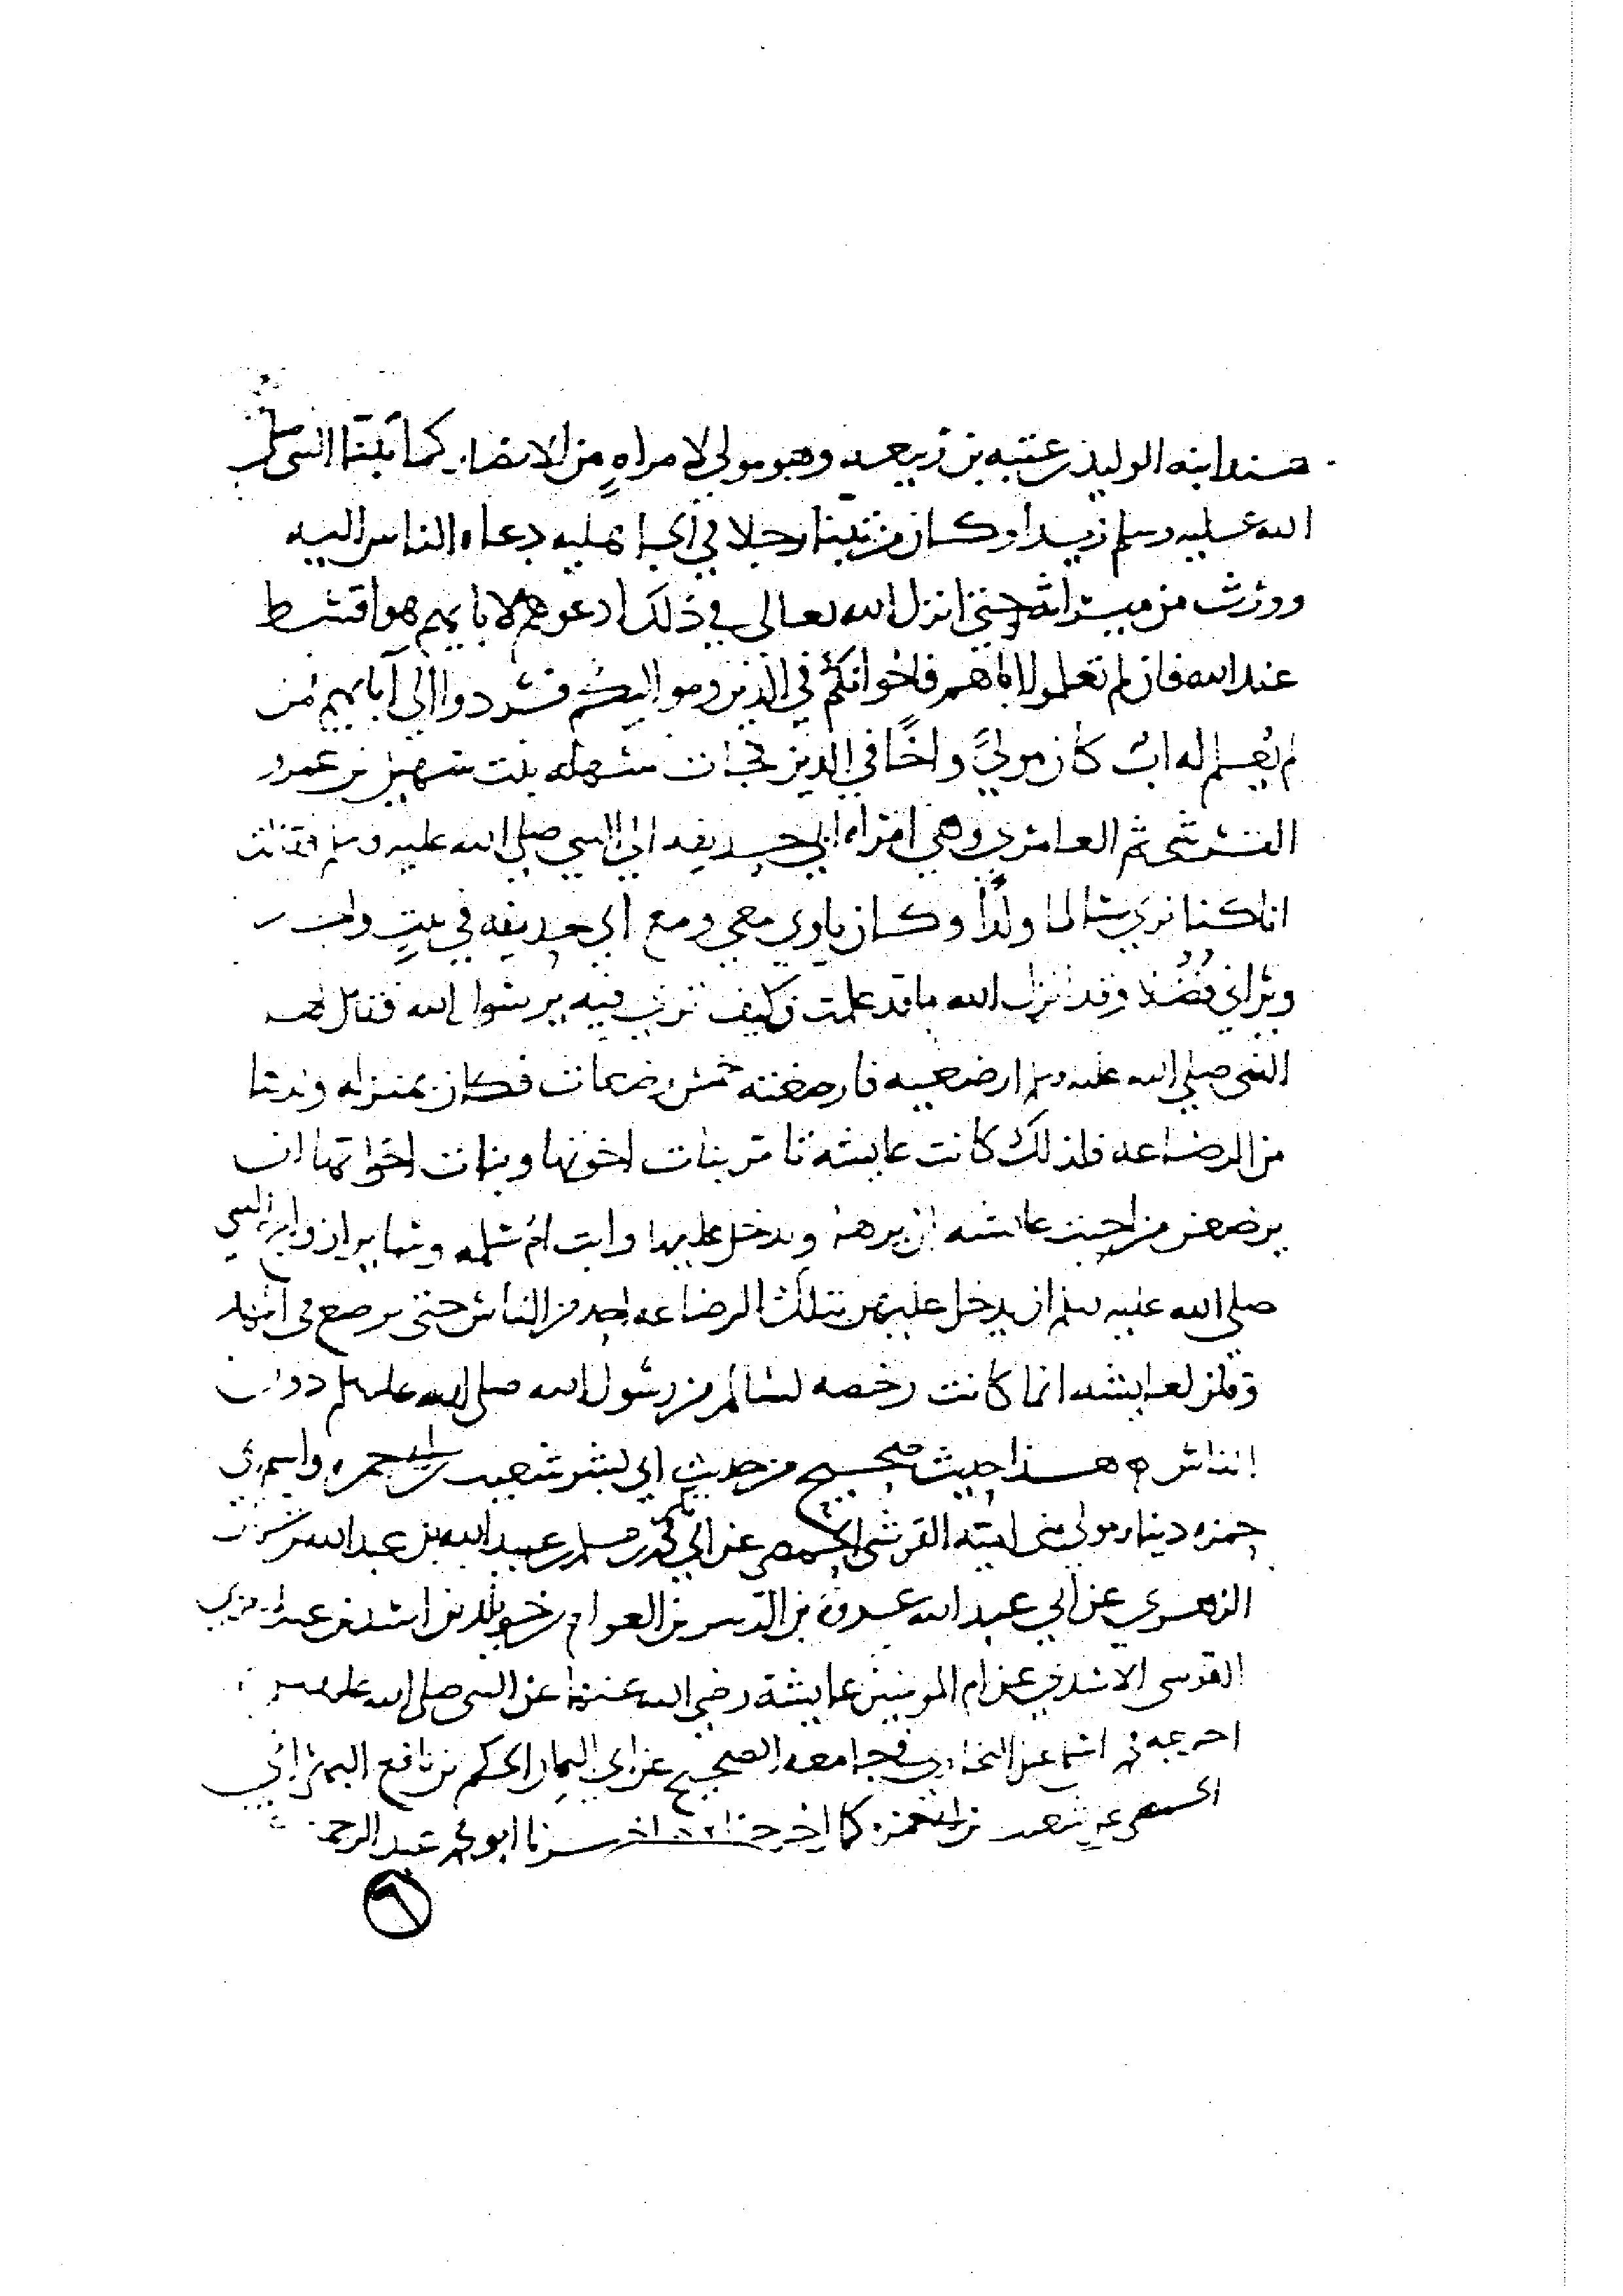 هند ابنه الوليد بن عتبه بن ربيعه وهو مولي لامراهٍ من الانصار كما تبنا النبي صلى
الله عليه وسلم زيدا وكان من تبنا رجلا في الجاهليه دعاه الناس اليه
وورث من ميراثه حتى انزل الله تعالى في ذلك ادعوهم لابايهم هو اقسط
عند الله فان لم تعلموا اباهم فاخوانكم في الدين ومواليكم فردوا الى آبايهم من
لم يُعلم له ابٌ كان موليً واخًا في الدين فجات سهله بنت سهيل بن عمرو
القرشي ثم العامري وهي امراه ابي حذيفه الى النبي صلى الله عليه وسلم فقالت
انا كنا نري سالما ولدًا وكان ياوي معي ومع ابي حذيفه في بيتٍ واحد
ويراني فُضُلا وقد انزل الله ما قد علمت فكيف تري فيه يرسول الله فقال لها
النبي صلى الله عليه وسلم ارضعيه فارضعته خمس رضعات فكان بمنزله ولدها
من الرضاعه فلذلك كانت عايشه تامر بنات اخوتها وبنات اخواتها ان
يرضعن من احبت عايشه ان يراها ويدخل عليها وابت ام سلمه وسايرازواج النبي
صلى الله عليه وسلم ان يدخل عليهن بتلك الرضاعه احد من الناس حتى يرضع في المهد
وقلن لعايشه انما كانت رخصه لسالم من رسول الله صلى الله عليه وسلم دون
الناس ه هذا حديث صحيح من حديث ابي بشر شعيب بن ابي حمزه واسم ابي
حمزه دينار مولى بني اميه القرشي الحمصي عن ابي بكر محمد بن مسلم بن عبيد الله بن عبد الله بن شهاب
الزهري عن ابي عبد الله عروة بن الزبير بن العوام بن خويلد بن اسد بن عبد العزي
القرشي الاسدي عن ام المومنين عايشة رضي الله عنها عن النبي صلى الله عليه وسلم
اخرجه محمد بن اسماعيل البخاري في جامعه الصحيح عن ابي اليمان الحكم بن نافع البهراني
الحمصي عن شعيب بن ابي حمزه كما اخرجناه اخبرنا ابو محمد عبد الرحمن
٦